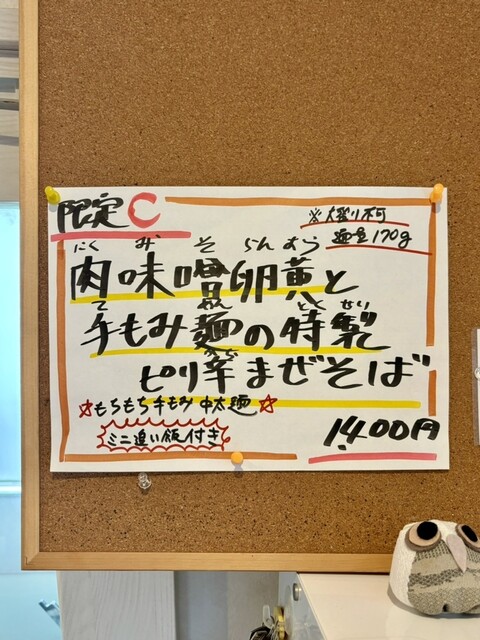 限定C
※大盛り不可
麺量170g
にく み そ らん おう
肉味噌卵黄と
て めん とく せい
手もみ麺の特製
から
ピリ辛まぜそば
☆もちもち手もみ中太麺☆
ミニ追い飯付き
1,400円